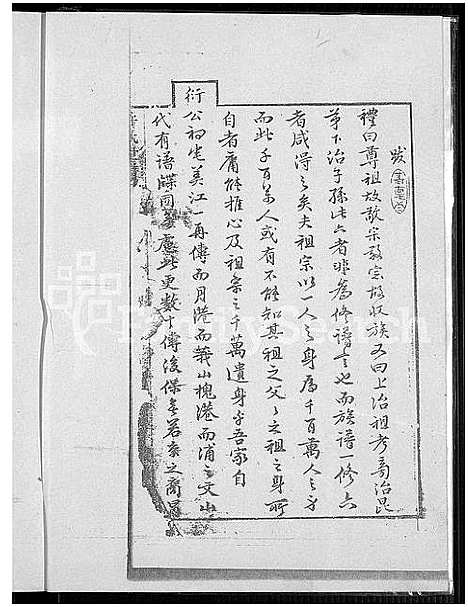 跋
禮曰尊祖故敬宗敬宗故收族又曰上治祖考旁治昆
弟下治子孫此六者非為修譜言也而族譜一修六
者咸得之矣夫祖宗以一人之身為千百萬人之身
而此千百萬人或有不能知其祖之父之祖之身所
自者庸能推心及祖宗之千萬遺身乎吾家自
衍公初宅美江一再傳而月港而義山槐港而浦之文山
代有譜牒同慮此更數十傳後保無若宗之裔
FamilySearch